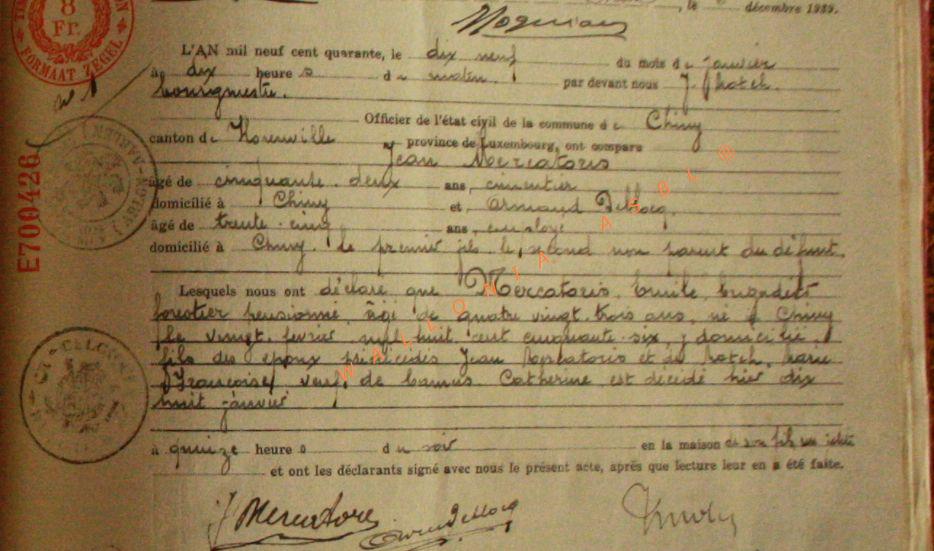 8
Fr.
FORMAAT ZEGEL
E700426
, le décembre 1939.
L'AN mil neuf cent quarante, le dix neuf du mois de janvier
à dix heure s du matin par devant nous J.
bourgmestre.
Officier de l'état civil de la commune de Chiny
canton de province de Luxembourg, ont comparu
Jean Mercatoris
âgé de cinquante deux ans, cimentier
domicilié à Chiny et Armand Dellocq,
âgé de trente cinq ans, employé
domicilié à Chiny. le premier fils le second non parent du défunt.
Lesquels nous ont déclaré que Mercatoris, Emile, brigadier
forestier pensionné, âgé de quatre vingt trois ans, né à Chiny
le vingt février mil huit cent cinquante six, y domicilié
fils des époux prédécédés Jean Mercatoris et de Marie
Françoise, veuf de Camus Catherine est décédé hier dix
huit janvier
à quinze heure s du soir en la maison de son fils
et ont les déclarants signé avec nous le présent acte, après que lecture leur en a été faite.
J Mercatoris
Dellocq